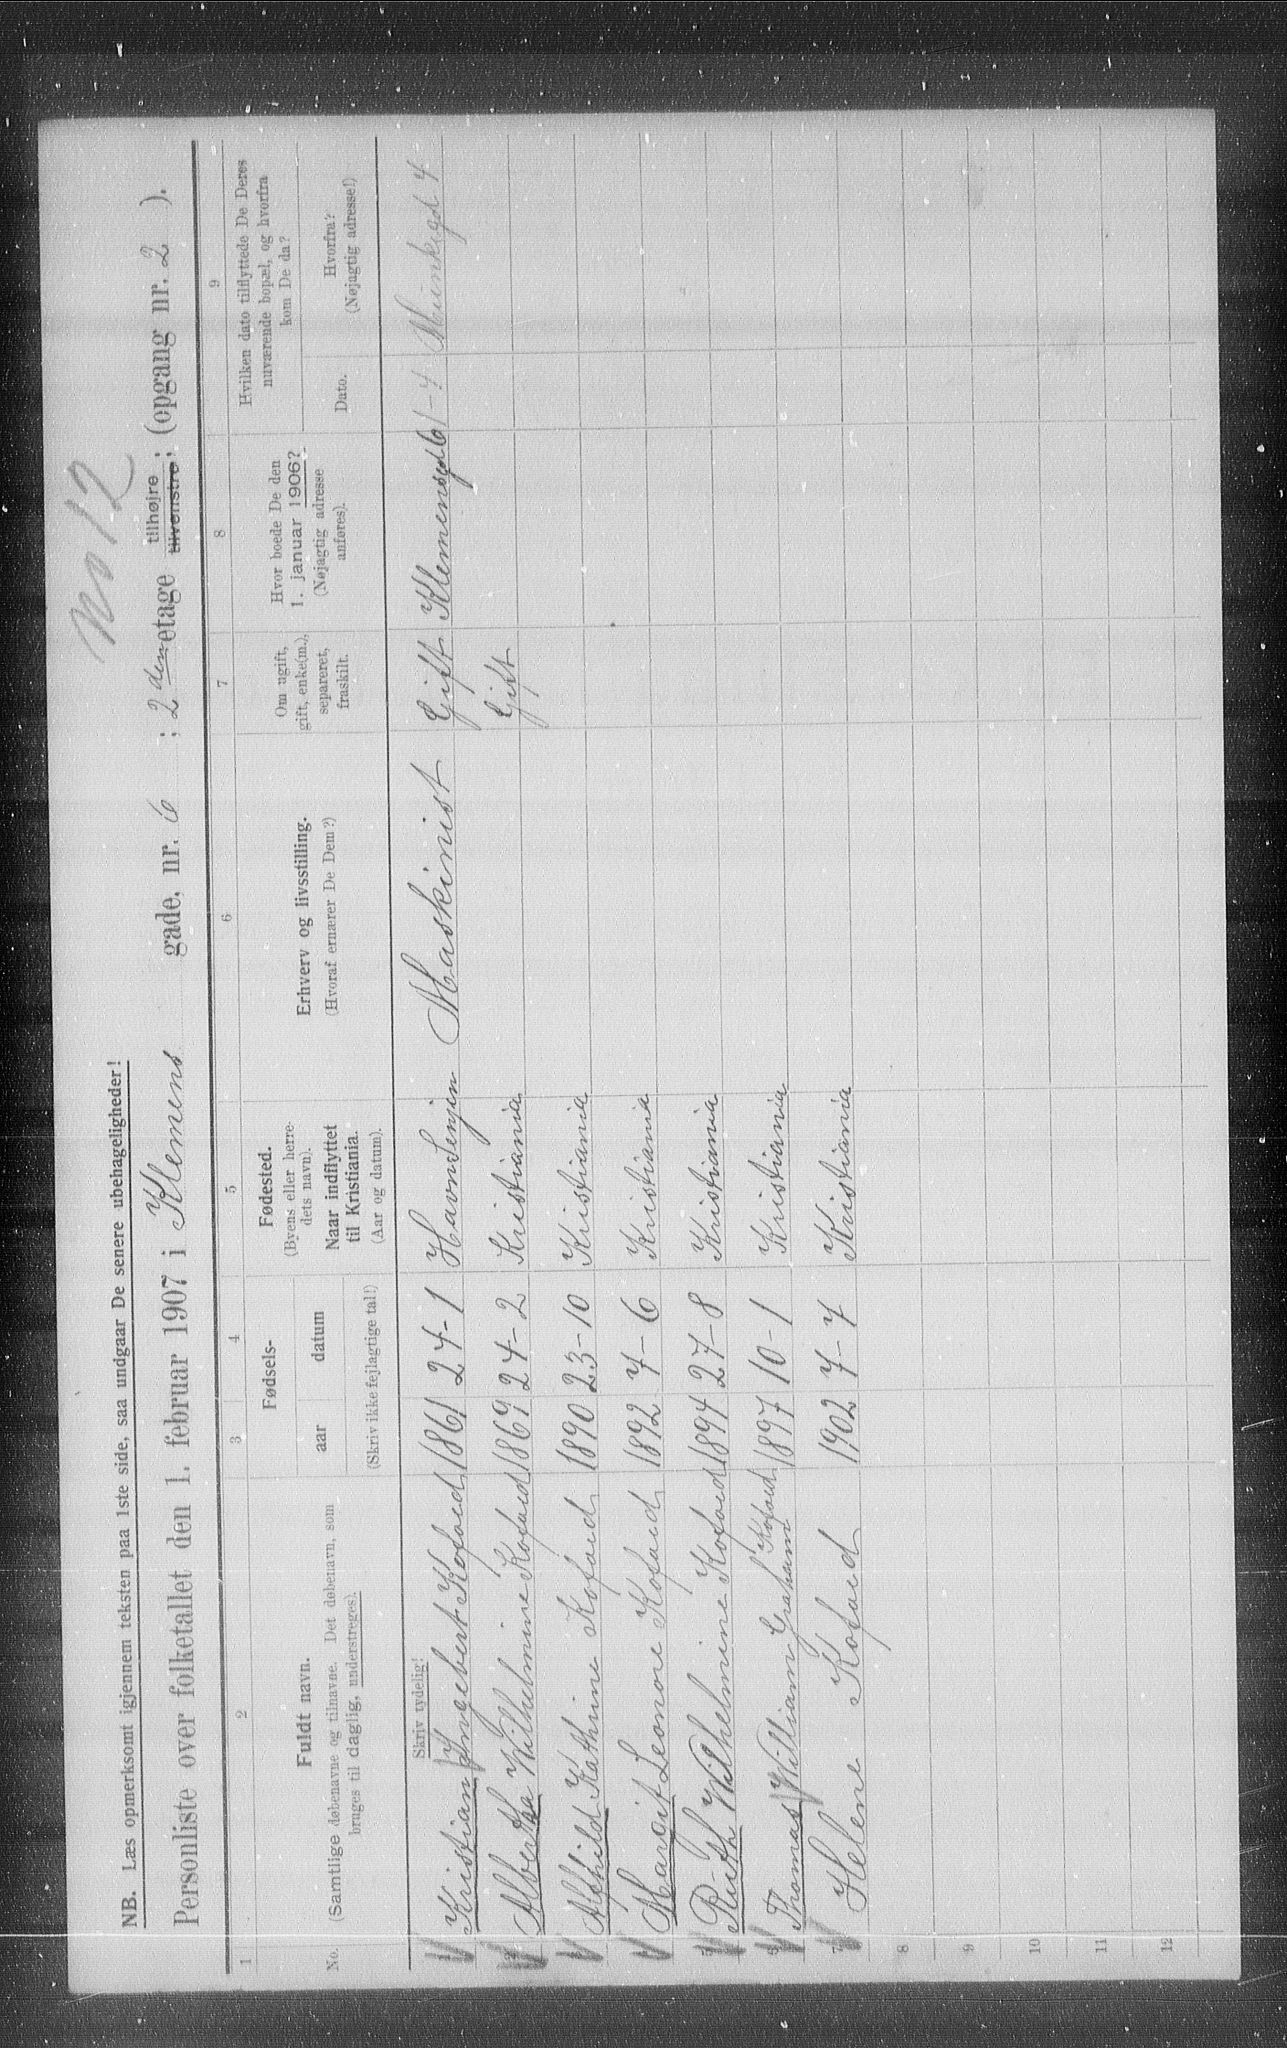 No 12
NB. Læs opmerksomt igjennem teksten paa 1ste side, saa undgaar De senere ubehageligheder!
Personliste over folketallet den 1. februar 1907 i Klemens gade, nr. 6 ; 2 den etage tilhøjre ; tilvenstre ; (opgang nr. 2 ).
1 2 3 4 5 6 7 8 9
No.
Fuldt navn.
(Samtlige døbenavne og tilnavne. Det døbenavn, som
bruges til daglig, understreges).
Fødsels-
aar datum
(Skriv ikke fejlagtige tal!)
Fødested.
(Byens eller herre-
dets navn).
Naar indflyttet
til Kristiania.
(Aar og datum).
Erhverv og livsstilling.
(Hvoraf ernærer De Dem?)
Om ugift,
gift, enke(m.),
separeret,
fraskilt.
Hvor boede De den
1. januar 1906?
(Nøjagtig adresse
anføres).
Hvilken dato tilflyttede De Deres
nuværende bopæl, og hvorfra
kom De da?
Dato.
Hvorfra?
(Nøjagtig adresse!)
Skriv tydelig!
Kristian Ingebert Kofoed 1861 24-1 Maskinist Gift Klemensgd 6 1-4 Munkegd 4
2 Albertha Wilhelmine Kofoed 1869 24-2 Kristiania Gift
Kathrine Kofoed 1890 23-10 Kristiania
Margit Leonore Kofoed 1892 7-6 Kristiania
5 Ruth Wilhelmine Kofoed 1894 27-8 Kristiania
6 Thomas William Graham Kofoed 1897 10-1 Kristiania
7 Helene Kofoed 1902 7-7 Kristiania
8
9
10
11
12